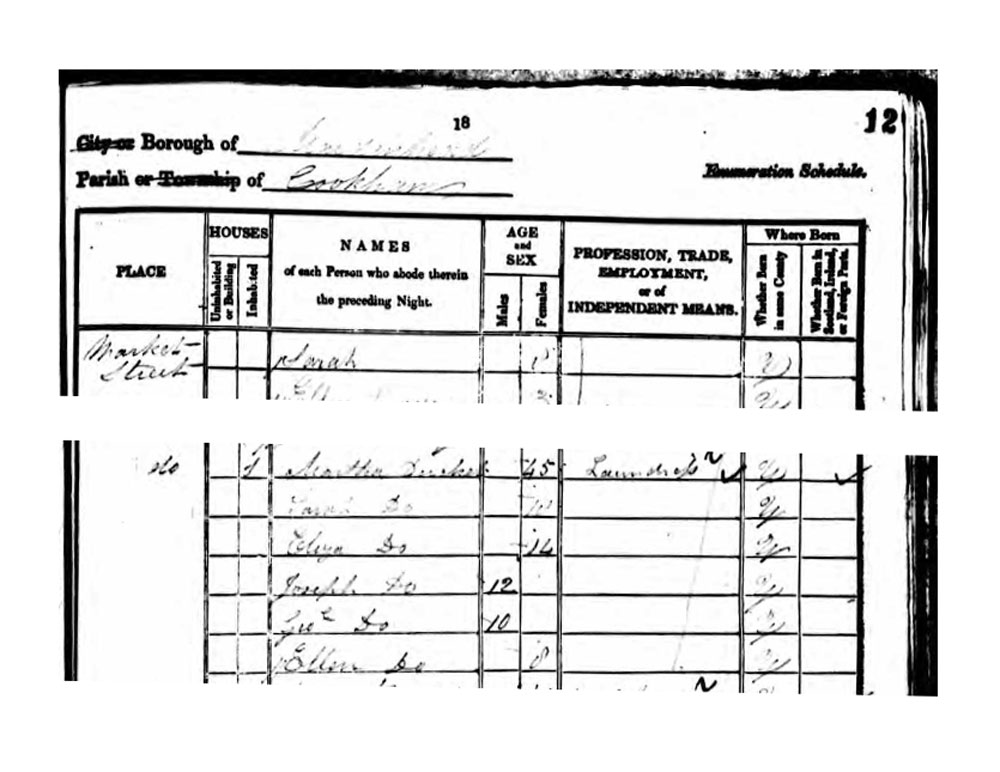 18
12
City or Borough of Maidenhead
Parish or Township of Cookham
Enumeration Schedule.
PLACE
HOUSES
Uninhabited or Building
Inhabited
NAMES
of each Person who abode therein
the preceding Night.
AGE
and
SEX
Males
Females
PROFESSION, TRADE,
EMPLOYMENT,
or of
INDEPENDENT MEANS.
Where Born
Whether Born
in same County
Whether Born in
Scotland, Ireland,
or Foreign Parts.
Market Sarah 8 Y
Street
Ellen Y
do 1 Martha Tucker 45 Laundress Y
Sarah Do Y
Eliza Do 14 Y
Joseph Do 12 Y
Geo Do 10 Y
Ellen Do 8 Y